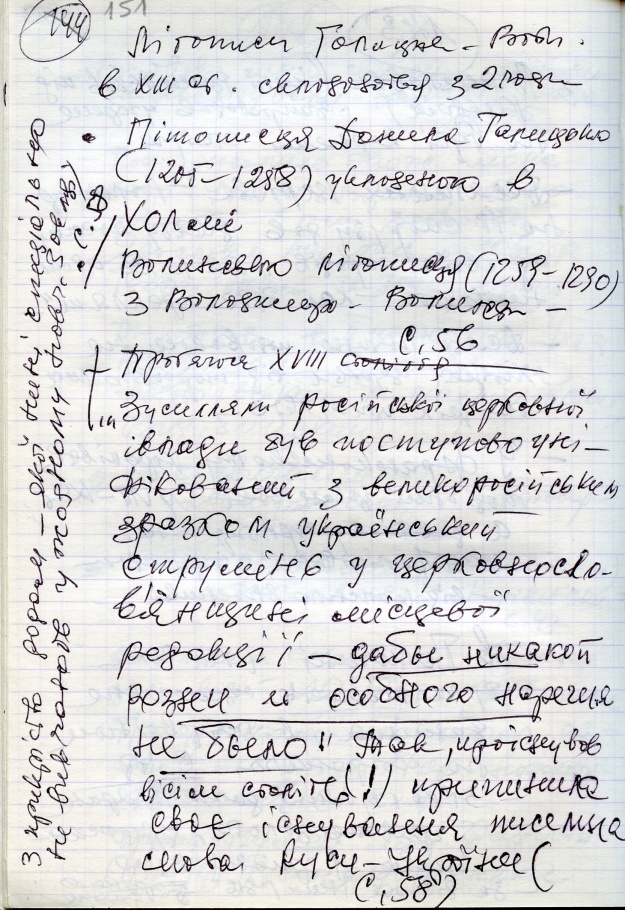 144 151
Літописи Галицько-Вол.
в XIII ст. складаються з 2 част.
• Літописця Данила Галицького
(1205–1258) укладеного в
Холмі
Волинського літописця (1259–1290)
з Володимира-Волинськ–
с. 56
Протягом XVIII століття
Зусиллями російської церковної
влади був поступово уні–
фікований з великоросійським
зразком український
струмінь у церковносло-
в'янщині місцевої
редакції – дабы никакой
розни и особного наречия
не было !! Так, проіснував
вісім століть(!) припинила
своє існування писемна
мова Руси-України (
с. 58)
З прикрістю додам – якої нині спеціально
не вивчають у жодному навч. закладі